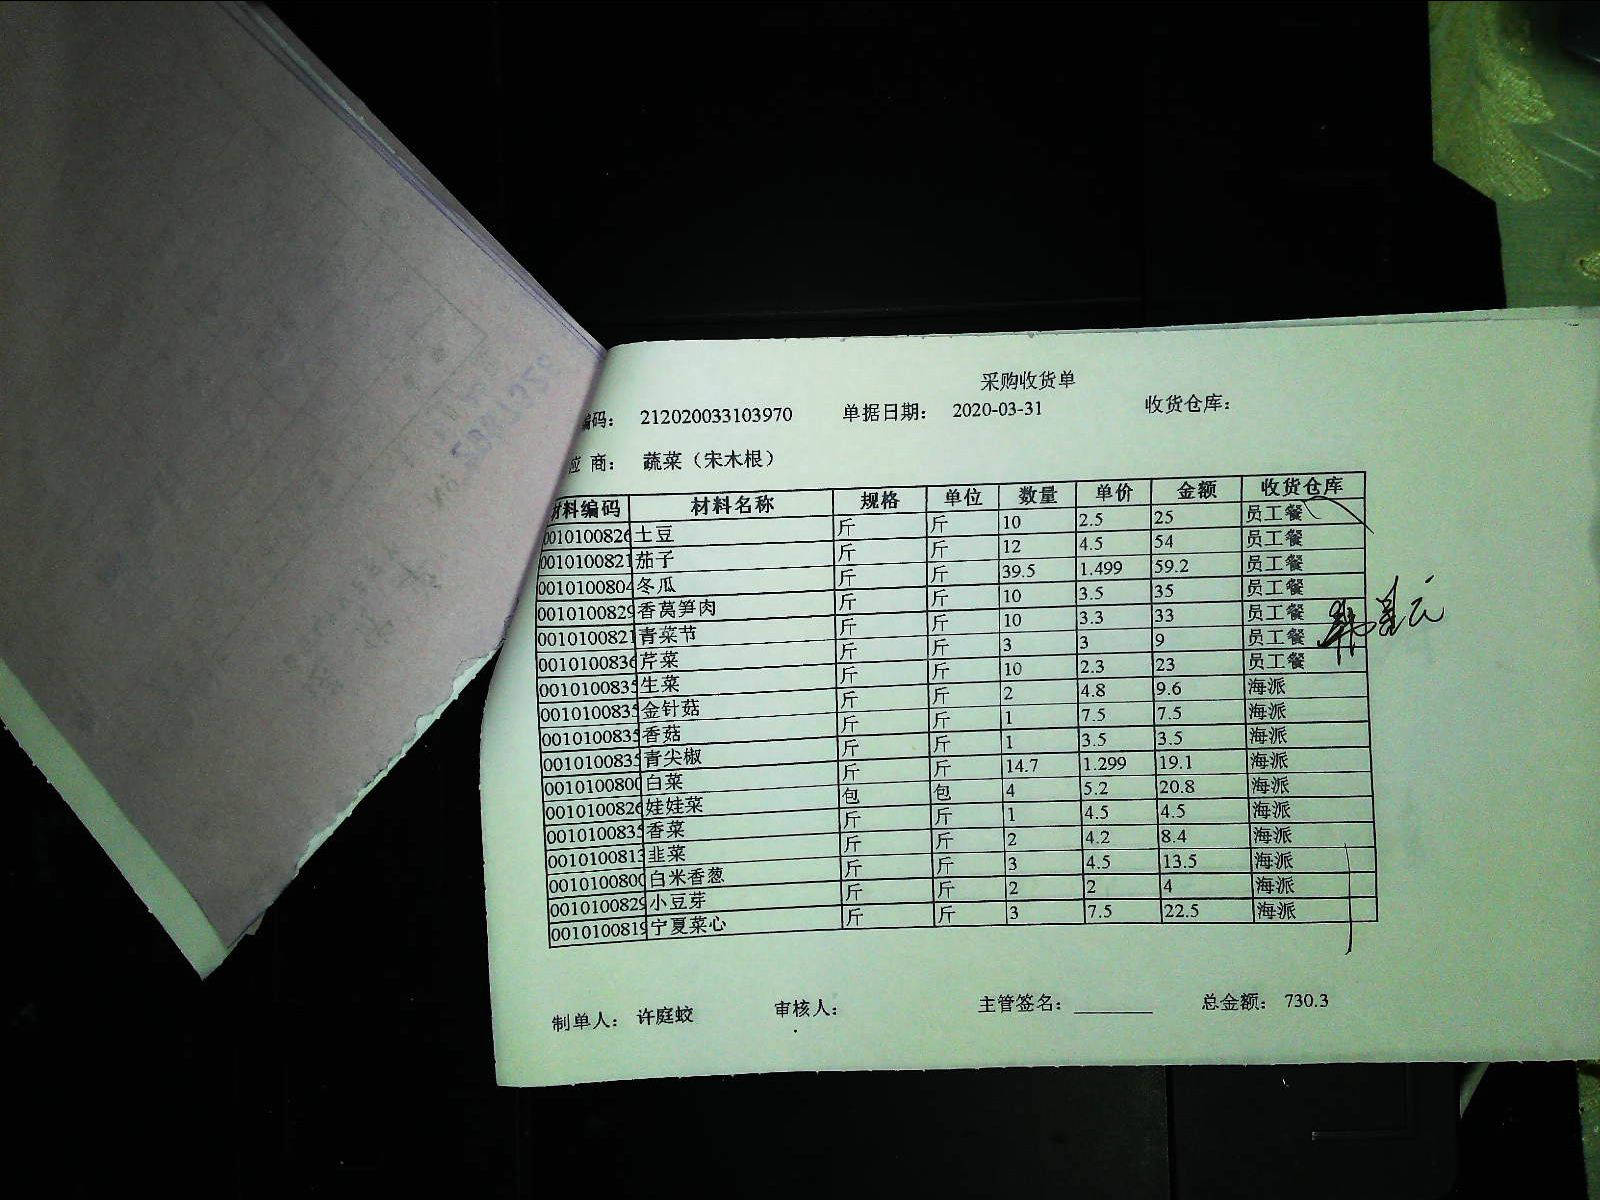 采购收货单
编码： 212020033103970 单据日期： 2020-03-31 收货仓库：
应 商： 蔬菜（宋木根）
材料编码 材料名称 规格 单位 数量 单价 金额 收货仓库
0010100826 土豆 斤 斤 10 2.5 25 员工餐
0010100821 茄子 斤 斤 12 4.5 54 员工餐
0010100804 冬瓜 斤 斤 39.5 1.499 59.2 员工餐
0010100829 香莴笋肉 斤 斤 10 3.5 35 员工餐
0010100821 青菜节 斤 斤 10 3.3 33 员工餐
0010100836 芹菜 斤 斤 3 3 9 员工餐
0010100835 生菜 斤 斤 10 2.3 23 员工餐
0010100835 金针菇 斤 斤 2 4.8 9.6 海派
0010100835 香菇 斤 斤 1 7.5 7.5 海派
0010100835 青尖椒 斤 斤 1 3.5 3.5 海派
0010100800 白菜 斤 斤 14.7 1.299 19.1 海派
0010100826 娃娃菜 包 包 4 5.2 20.8 海派
0010100835 香菜 斤 斤 1 4.5 4.5 海派
0010100813 韭菜 斤 斤 2 4.2 8.4 海派
0010100800 白米香葱 斤 斤 3 4.5 13.5 海派
0010100829 小豆芽 斤 斤 2 2 4 海派
0010100819 宁夏菜心 斤 斤 3 7.5 22.5 海派
制单人： 许庭蛟 审核人： 主管签名： 总金额： 730.3